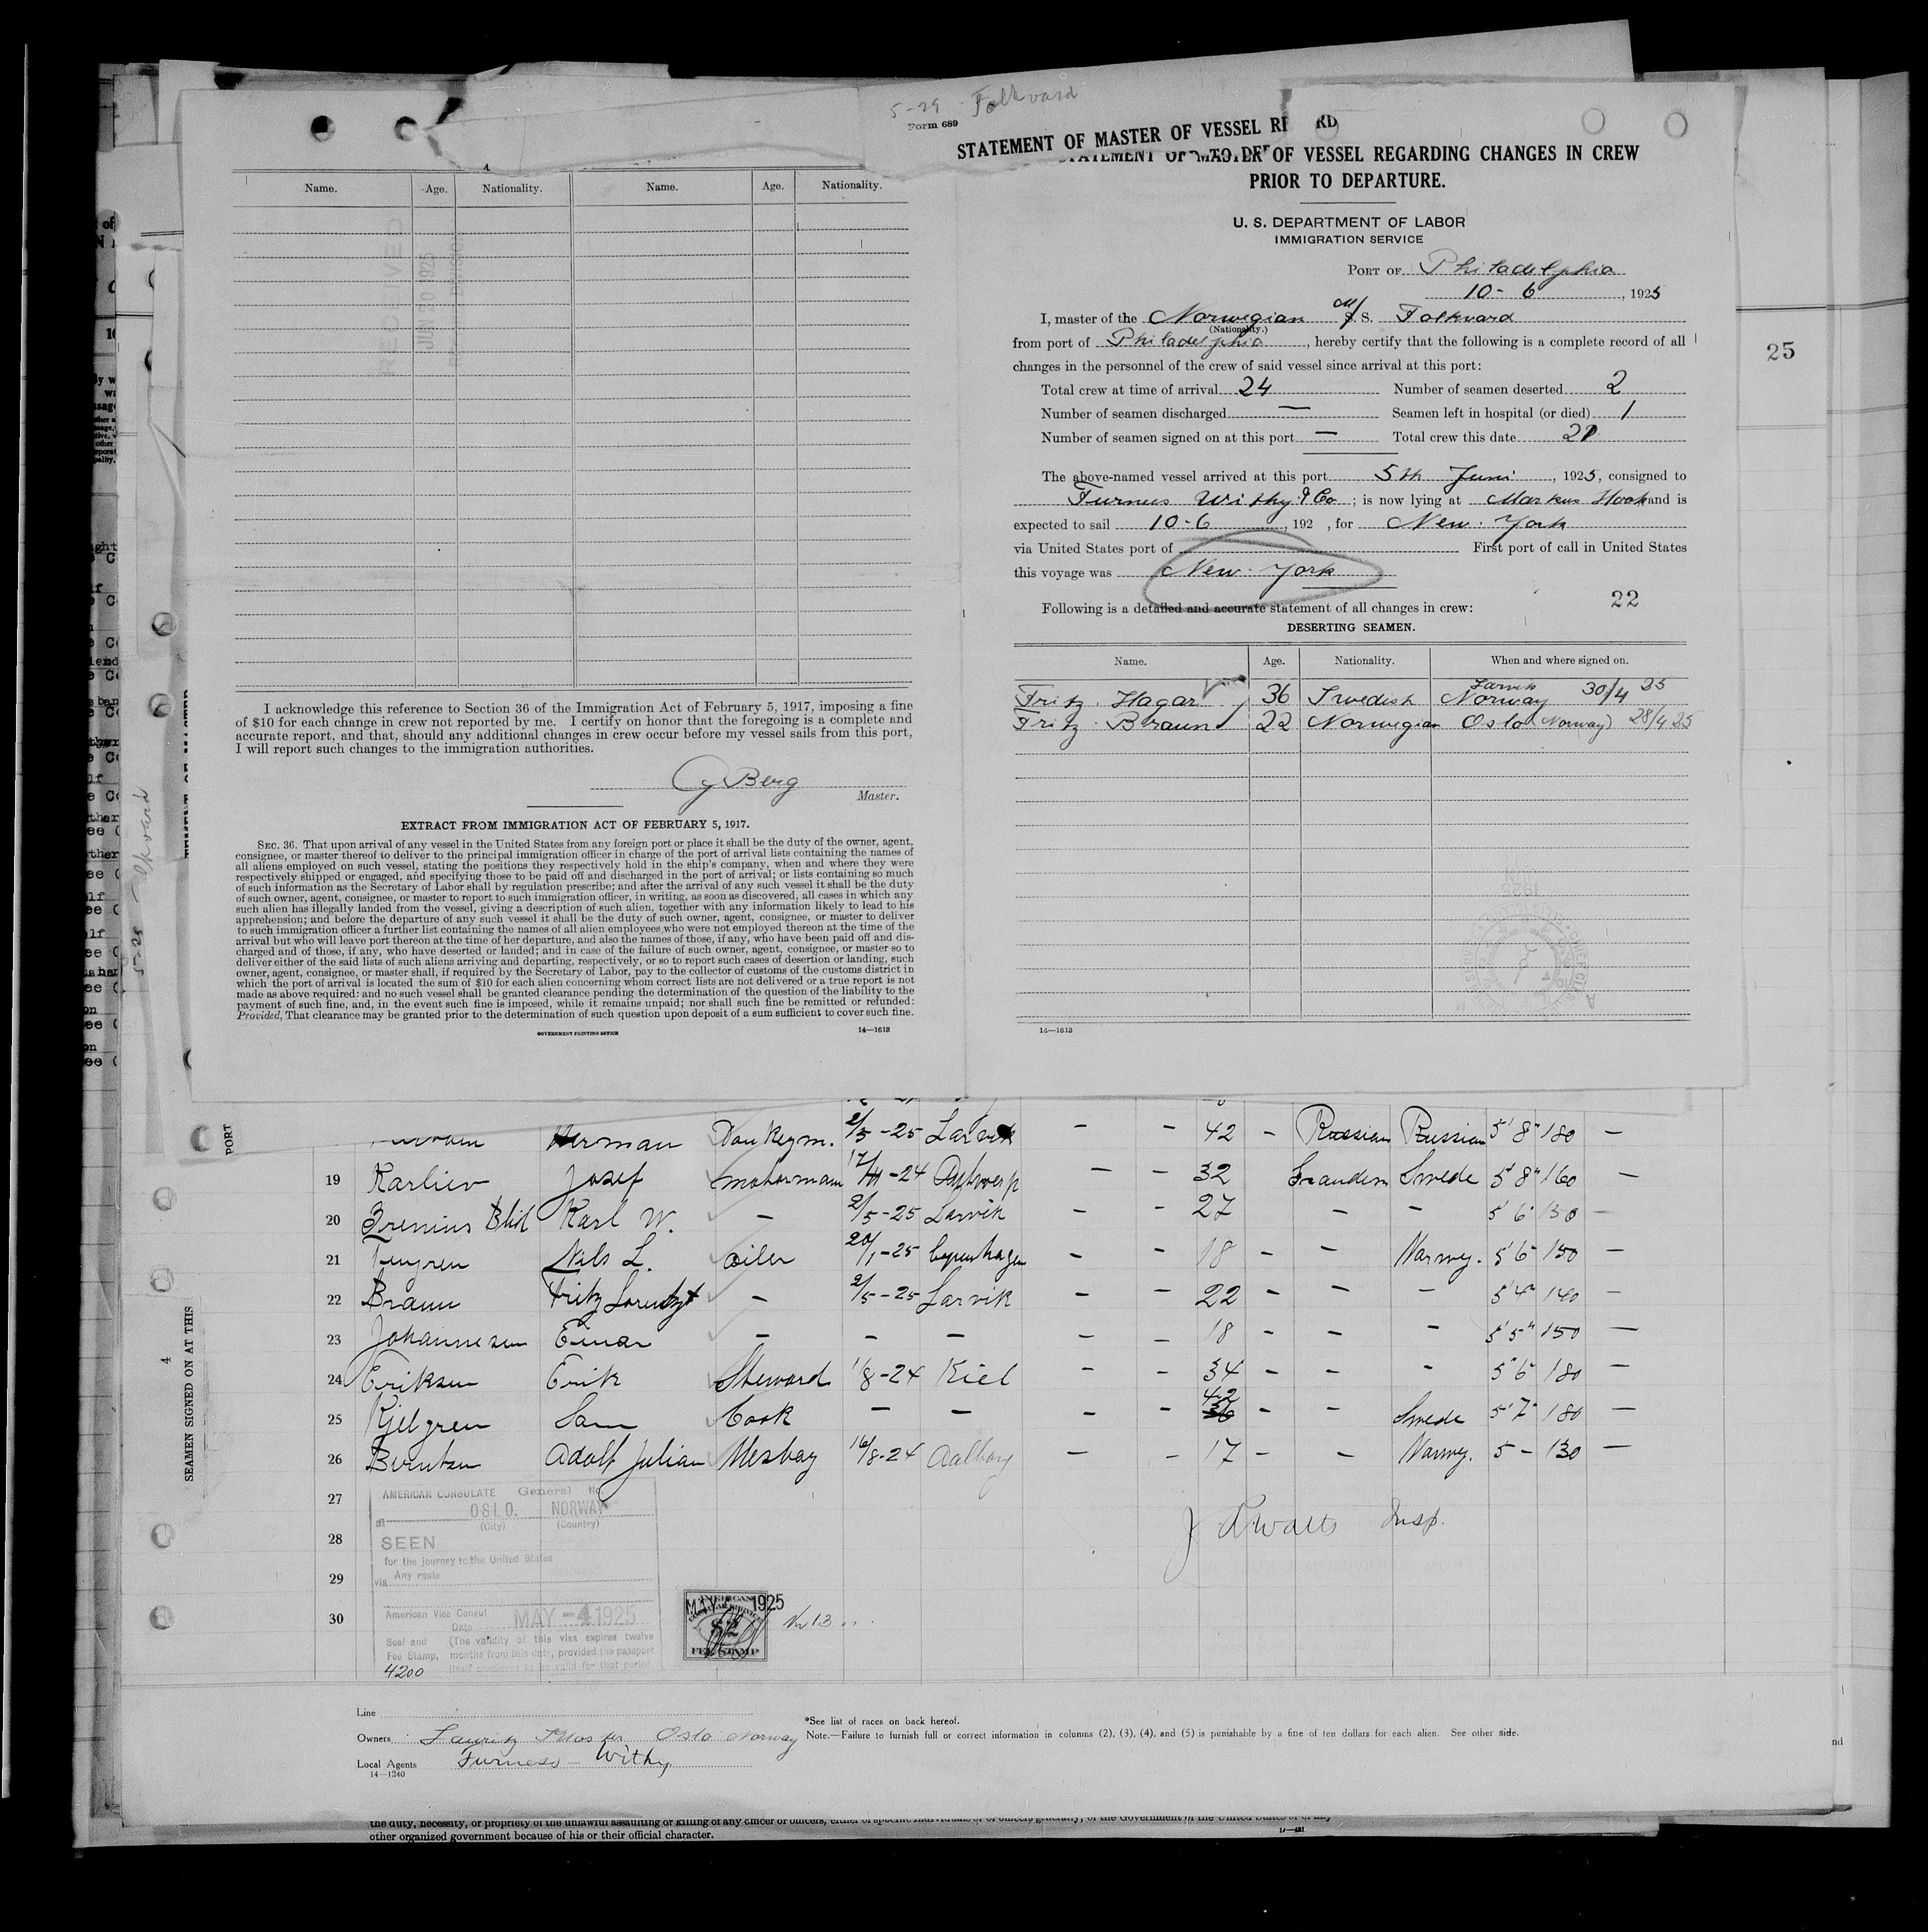 5-29 Folkvard
Form 689
STATEMENT OF MASTER OF VESSEL RE RD
STATEMENT OF MASTER OF VESSEL REGARDING CHANGES IN CREW
PRIOR TO DEPARTURE.
U. S. DEPARTMENT OF LABOR
IMMIGRATION SERVICE
PORT OF Philadelphia
10-6, 1925
I, master of the Norwegian M/S. S. Folkvard
(Nationality.)
from port of Philadelphia, hereby certify that the following is a complete record of all
changes in the personnel of the crew of said vessel since arrival at this port:
Total crew at time of arrival 24 Number of seamen deserted 2
Number of seamen discharged — Seamen left in hospital (or died) 1
Number of seamen signed on at this port — Total crew this date 21
The above-named vessel arrived at this port 5th Juni, 1925, consigned to
Furness Withy & Co; is now lying at Markus Hook and is
expected to sail 10-6, 192 , for New York
via United States port of First port of call in United States
this voyage was New York
Following is a detailed and accurate statement of all changes in crew:
22
DESERTING SEAMEN.
Name. Age. Nationality. When and where signed on.
Fritz Hagar 36 Swedish Larvik Norway 30/4 25
Fritz Braun 22 Norwegian Oslo (Norway) 28/4 25
14—1613
25
Name. Age. Nationality. Name. Age. Nationality.
RECEIVED
JUN 20 1925
I acknowledge this reference to Section 36 of the Immigration Act of February 5, 1917, imposing a fine
of $10 for each change in crew not reported by me. I certify on honor that the foregoing is a complete and
accurate report, and that, should any additional changes in crew occur before my vessel sails from this port,
I will report such changes to the immigration authorities.
Berg
Master.
EXTRACT FROM IMMIGRATION ACT OF FEBRUARY 5, 1917.
SEC. 36. That upon arrival of any vessel in the United States from any foreign port or place it shall be the duty of the owner, agent,
consignee, or master thereof to deliver to the principal immigration officer in charge of the port of arrival lists containing the names of
all aliens employed on such vessel, stating the positions they respectively hold in the ship's company, when and where they were
respectively shipped or engaged, and specifying those to be paid off and discharged in the port of arrival; or lists containing so much
of such information as the Secretary of Labor shall by regulation prescribe; and after the arrival of any such vessel it shall be the duty
of such owner, agent, consignee, or master to report to such immigration officer, in writing, as soon as discovered, all cases in which any
such alien has illegally landed from the vessel, giving a description of such alien, together with any information likely to lead to his
apprehension; and before the departure of any such vessel it shall be the duty of such owner, agent, consignee, or master to deliver
to such immigration officer a further list containing the names of all alien employees who were not employed thereon at the time of the
arrival but who will leave port thereon at the time of her departure, and also the names of those, if any, who have been paid off and dis-
charged and of those, if any, who have deserted or landed; and in case of the failure of such owner, agent, consignee, or master so to
deliver either of the said lists of such aliens arriving and departing, respectively, or so to report such cases of desertion or landing, such
owner, agent, consignee, or master shall, if required by the Secretary of Labor, pay to the collector of customs of the customs district in
which the port of arrival is located the sum of $10 for each alien concerning whom correct lists are not delivered or a true report is not
made as above required: and no such vessel shall be granted clearance pending the determination of the question of the liability to the
payment of such fine, and, in the event such fine is imposed, while it remains unpaid; nor shall such fine be remitted or refunded:
Provided, That clearance may be granted prior to the determination of such question upon deposit of a sum sufficient to cover such fine.
GOVERNMENT PRINTING OFFICE
14—1613
PORT
4
SEAMEN SIGNED ON AT THIS
Herman Donkeym. 2/5-25 Larvik - - 42 - Russian Russian 5'8" 180 -
19 Karliev Josef motorman 17/11-24 Antwerp - - 32 Swede 5'8" 160 -
20 Karl W. - 2/5-25 Larvik - - 27 - - 5'6" 130 -
21 Nils L. oiler 20/1-25 Copenhagen - - 18 - - Norwg. 5'6" 150 -
22 Braun Fritz Lorentz - 2/5-25 Larvik - - 22 - - - 5'4" 140 -
23 Johannesen Einar - - - - - 18 - - - 5'5" 150 -
24 Eriksen Erik Steward 1/8-24 Kiel - - 34 - - - 5'6" 180 -
25 Kjelgren Sam Cook - - - - 42 36 - - Swede 5'7" 180 -
26 Berntsen Adolf Julian Mesboy 16/8-24 Aalborg - - 17 - - Norwg. 5 - 130 -
27
28
29
30
AMERICAN CONSULATE General
at OSLO. NORWAY
(City) (Country)
SEEN
for the journey to the United States
via Any route
American Vice Consul
Date MAY -4 1925
Seal and (The validity of this visa expires twelve
Fee Stamp, months from this date, provided the passport
itself continues to be valid for that period.
4200
MAY 1925
AMERICAN
$2
FEE STAMP
No 13
J Watts Insp.
Line
Owners Lauritz Kloster Oslo Norway
Local Agents Furness-Withy
14—1240
*See list of races on back hereof.
Note.—Failure to furnish full or correct information in columns (2), (3), (4), and (5) is punishable by a fine of ten dollars for each alien. See other side.
the duty, necessity, or propriety of the unlawful assaulting or killing of any officer or officers, either of specific individuals or of officers generally, of the Government of the United States or of any
other organized government because of his or their official character.